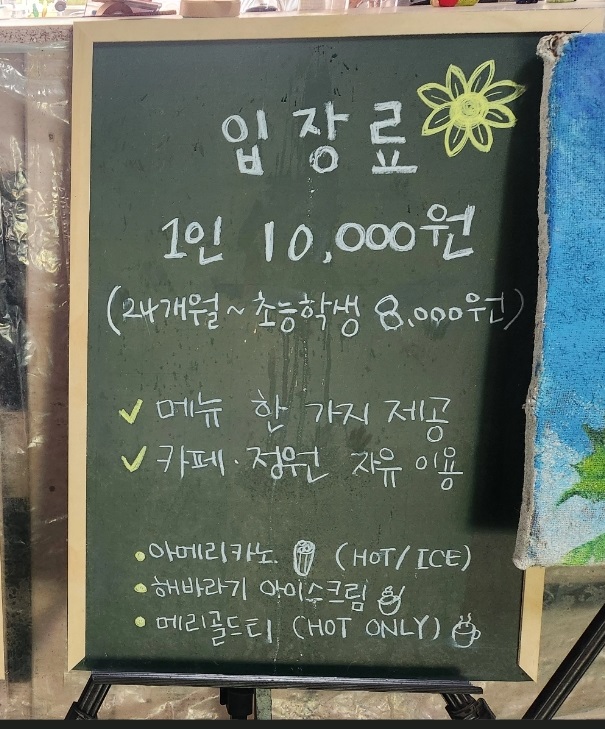 입장료
1인 10,000원
(24개월~초등학생 8,000원)
✓ 메뉴 한 가지 제공
✓ 카페·정원 자유 이용
• 아메리카노 (HOT/ICE)
• 해바라기 아이스크림
• 메리골드티 (HOT ONLY)